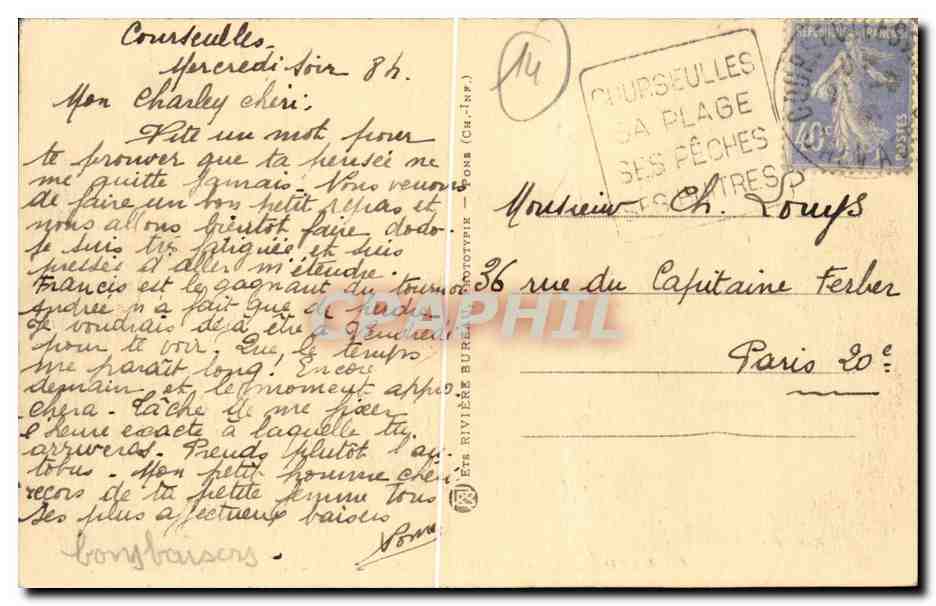 Courseulles
Mercredi soir 8h.
Mon Charley chéri,
Vite un mot pour
te prouver que ta pensée ne
me quitte jamais. Nous venons
de faire un bon petit repas et
nous allons bientôt faire dodo.
Je suis très fatiguée et suis
pressée d'aller m'étendre.
Francis est le gagnant du tournoi
Andrée n'a fait que de perdre
Je voudrais déjà être à Vendredi
pour te voir. Que le temps
me paraît long! Encore
demain et le moment appro
chera. Tâche de me fixer
l'heure exacte à laquelle tu
arriveras. Prends plutôt l'au
tobus. Mon petit homme chéri
reçois de ta petite femme tous
ses plus affectueux baisers
bons baisers.
ETS RIVIÈRE BUREAU, PHOTOTYPIE - PONS (CH.-INF.)
14
COURSEULLES
SA PLAGE
SES PÊCHES
SES HUITRES
RÉPUBLIQUE FRANÇAISE
40c
POSTES
Monsieur Ch. Louys
36 rue du Capitaine Ferber
Paris 20e
CPAPHIL